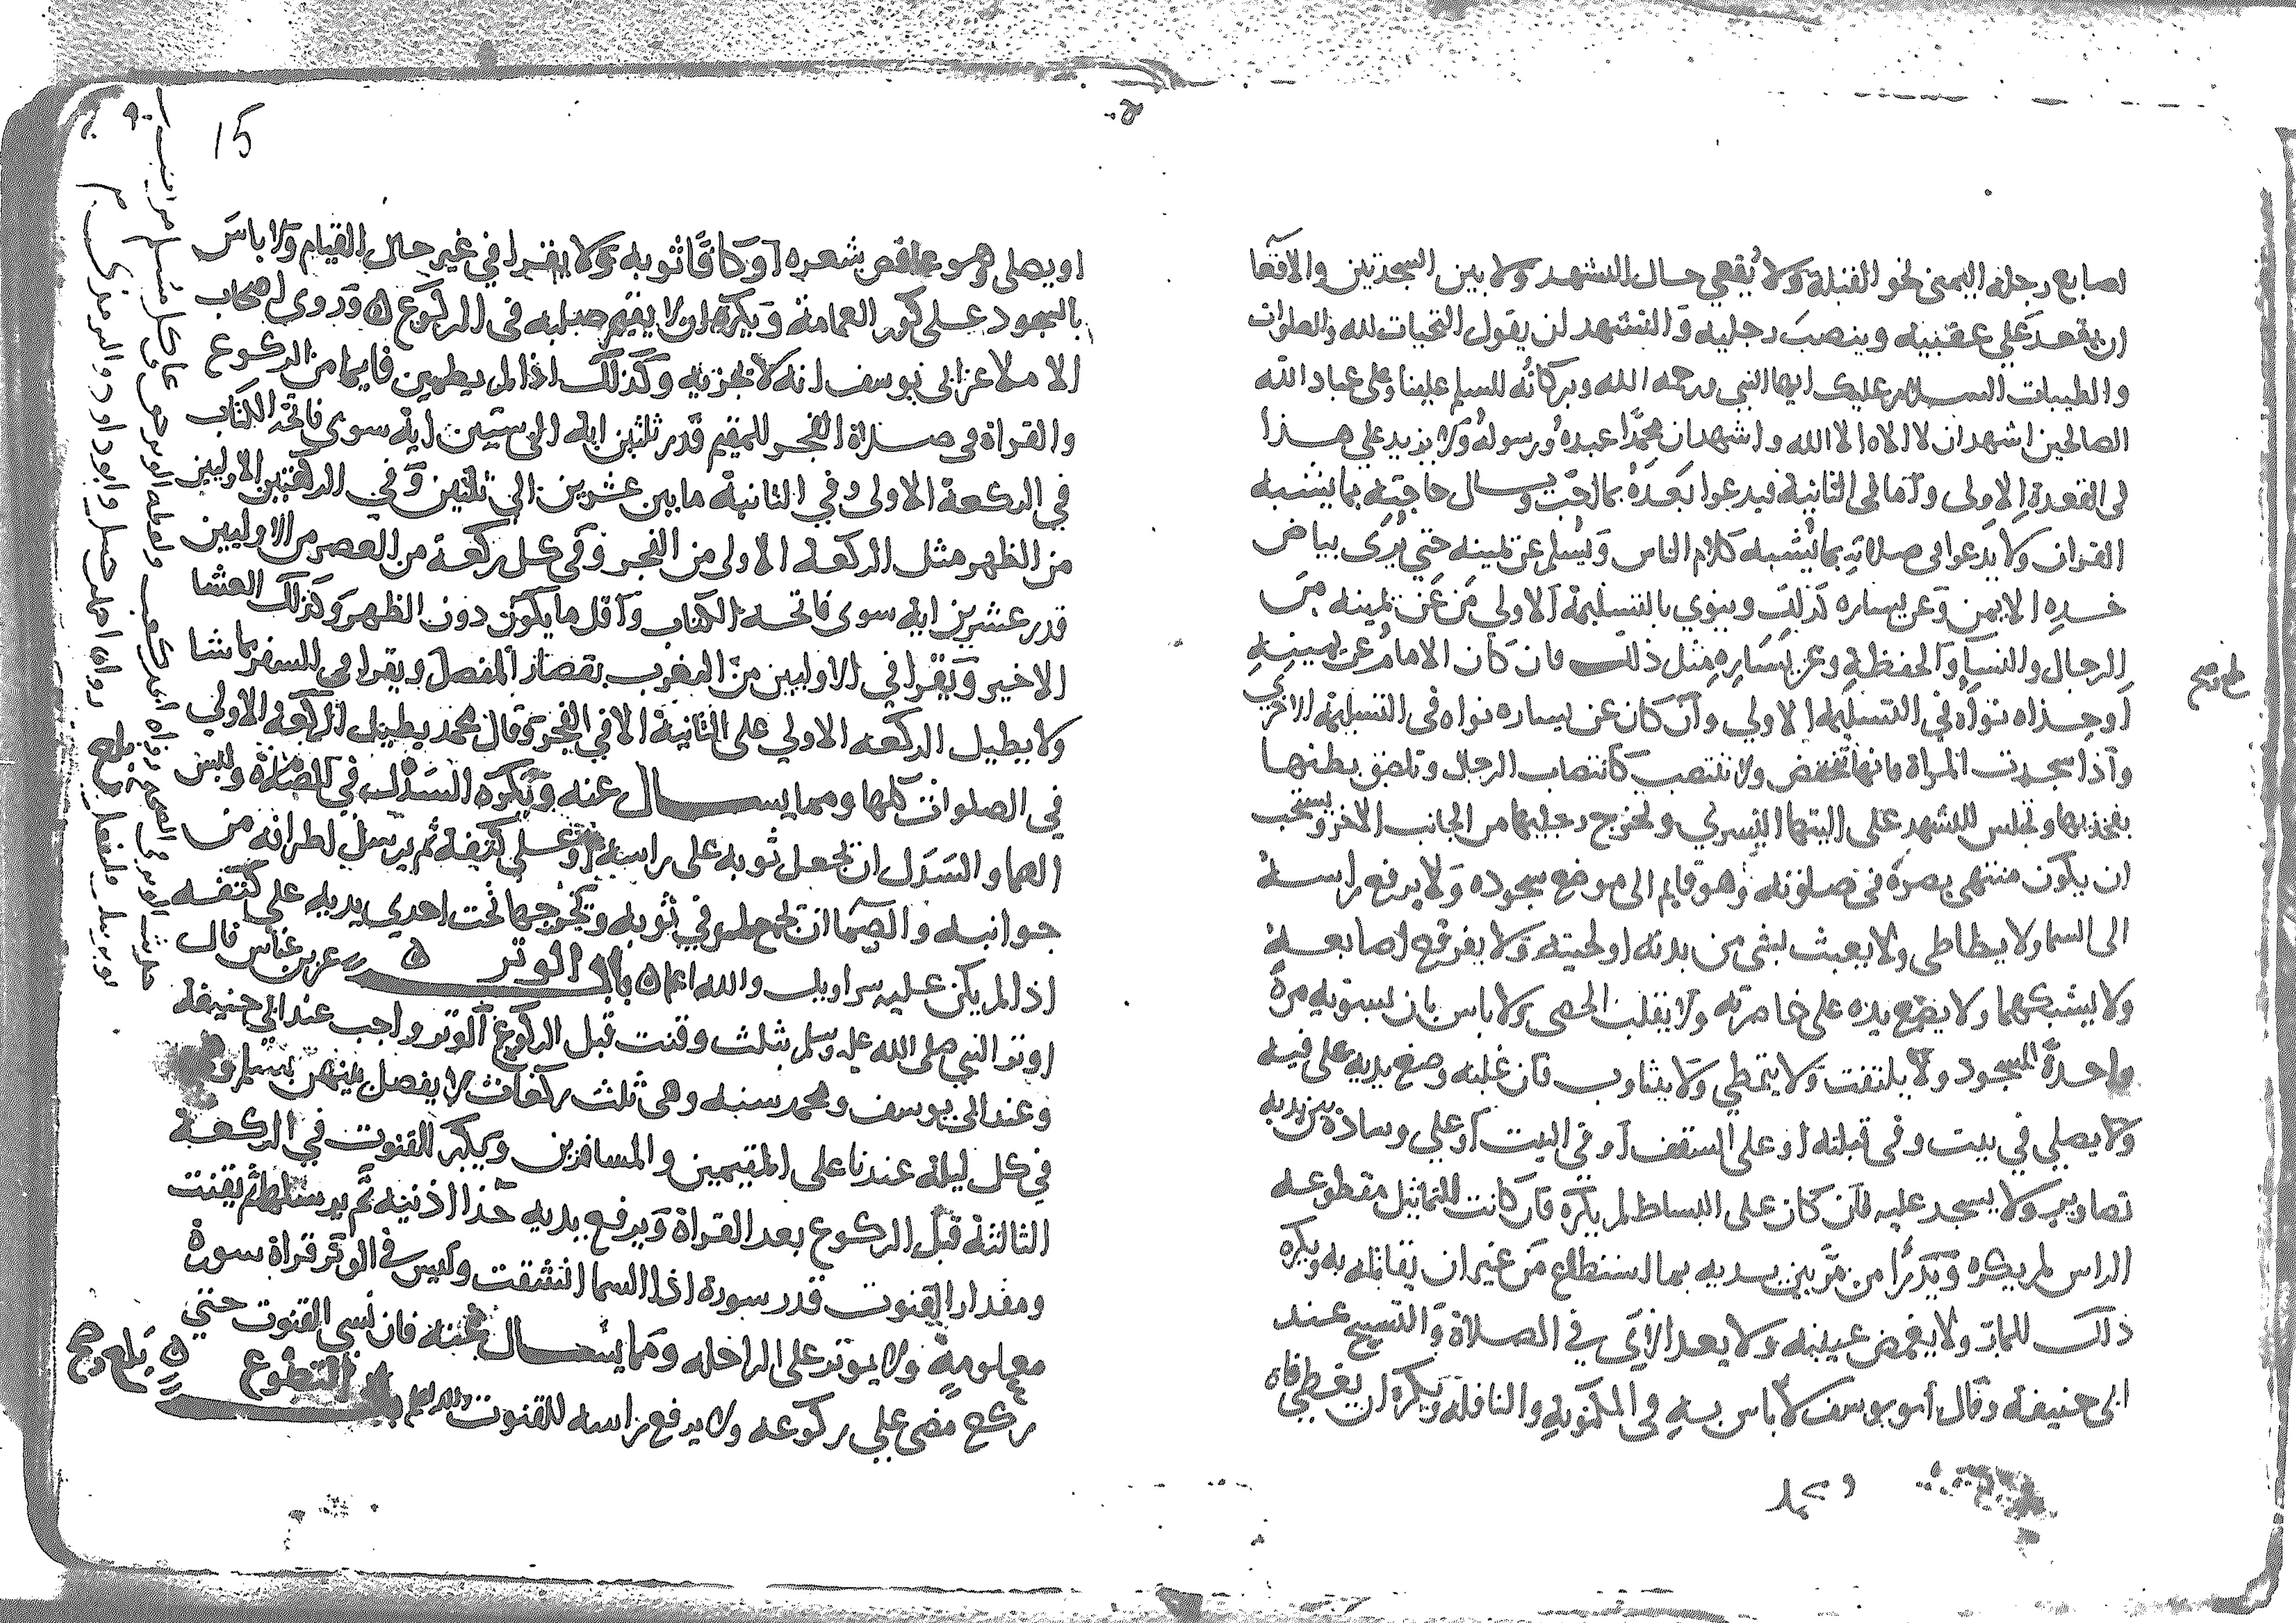 اصابع رجله اليمنى نحو القبلة ولا يُقعي حال التشهد ولا بين السجدتين والاقعا
ان يقعد على عقبيه وينصب رجليه والتشهد ان يقول التحيات لله والصلوات
والطيبات السلام عليك ايها النبي ورحمة الله وبركاته السلم علينا وعلى عباد الله
الصالحين اشهد ان لا اله الا الله واشهد ان محمدًا عبده ورسوله ولا يزيد على هذا
في القعدة الاولى واما في الثانية فيدعوا بعده بما احب ويسال حاجته بما يشبه
القران ولا يدعوا في صلاته بما يُشبه كلام الناس ويُسلم عن يمينه حتى يُرى بياض
خده الايمن وعن يساره كذلك وينوي بالتسليمة الاولى من عن يمينه من
الرجال والنسا والحفظة وعن يساره مثل ذلك فان كان الامام عن يمينه
او حذاه نواه في التسليمه الاولي وان كان عن يساره نواه في التسليمة الاخرى
واذا سجدت المراة فانها تنخفض ولا تنتصب كانتصاب الرجال وتلصق بطنها
بفخذيها وتجلس للتشهد على اليتها اليسرى وتخرج رجليها من الجانب الاخر ويستحب
ان يكون منتهى بصره في صلوته وهو قايم الى موضع سجوده ولا يرفع راسه
الى السما ولا يطاطي ولا يعبث بشي من بدنه او لحيته ولا يفرقع اصابعه
ولا يشبكهما ولا يضع يده على خاصرته ولا يقلب الحصى ولا باس بان يسويه مرة
واحدة للسجود ولا يلتفت ولا يتمطي ولا يتثاوب فان غلبه وضع يديه على فيه
ولا يصلي في بيت وفي قبلته او على السقف او في البيت او على وسادة بين يديه
تصاوير ولا يسجد عليه فان كان على البساط لم يكره فان كانت التماثيل مقطوعه
الراس لم يكره ويَدْرَأ من مرّ بين يديه بما استطاع من غير ان يقاتله به ويكره
ذلك للمار ولا يغمض عينيه ولا يعد الآي في الصلاة والتسبيح عند
ابي حنيفة وقال ابو يوسف لا باس به في المكتوبة والنافلة ويكره ان يغطي فاه
15
او يصلي وهو عاقص شعره او كافًا ثوبه ولا يقرا في غير حال القيام ولا باس
بالسجود على كور العمامة ويكره ان لا يقيم صلبه في الركوع ه وروى اصحاب
الاملا عن ابي يوسف انه لا يجزيه وكذلك اذا لم يطمين قايما من الركوع
والقراة في صلاة الفجر للمقيم قدر ثلثين اية الى ستين اية سوى فاتحة الكتاب
في الركعة الاولى وفي الثانية ما بين عشرين الى ثلثين وفي الركعتين الاوليين
من الظهر مثل الركعة الاولى من الفجر وفي كل ركعة من العصر من الاوليين
قدر عشرين اية سوى فاتحة الكتاب واقل ما يكون دون الظهر وكذلك العشا
الاخير ويقرا في الاوليين من المغرب بقصار المفصل ويقرا في السفر بما شا
ولا يطيل الركعه الاولي على الثانية الا في الفجر وقال محمد يطيل الركعة الاولي
في الصلوات كلها ومما يسال عنه ويكره السدل في الصلاة ولبس
الصما والسدل ان يجعل ثوبه على راسه او على كتفيه ثم يرسل اطرافه من
جوانبه والصما ان يجمع طرفي ثوبه ويخرجها تحت احدى يديه على كتفه
اذا لم يكن عليه سراويل والله اعلم ه باب الوتر ه عن بن عباس قال
اوتر النبي صلى الله عليه وسلم بثلث وقنت قبل الركوع الوتر واجب عند ابي حنيفة
وعند ابي يوسف ومحمد سنه وهي ثلث ركعات لا يفصل بينهن بسلام
في كل ليلة عندنا على المقيمين والمسافرين ويكبر للقنوت في الركعة
الثالثة قبل الركوع بعد القراة ويرفع يديه حذا اذنيه ثم يرسلها ثم يقنت
ومقدار القنوت قدر سورة اذا السما انشقت وليس في الوتر قراة سورة
معلومة ولا يوتر على الراحله ومما يسال عنه فان نسي القنوت حتى
ركع مضى على ركوعه ولا يرفع راسه للقنوت والله اعلم باب التطوع ه